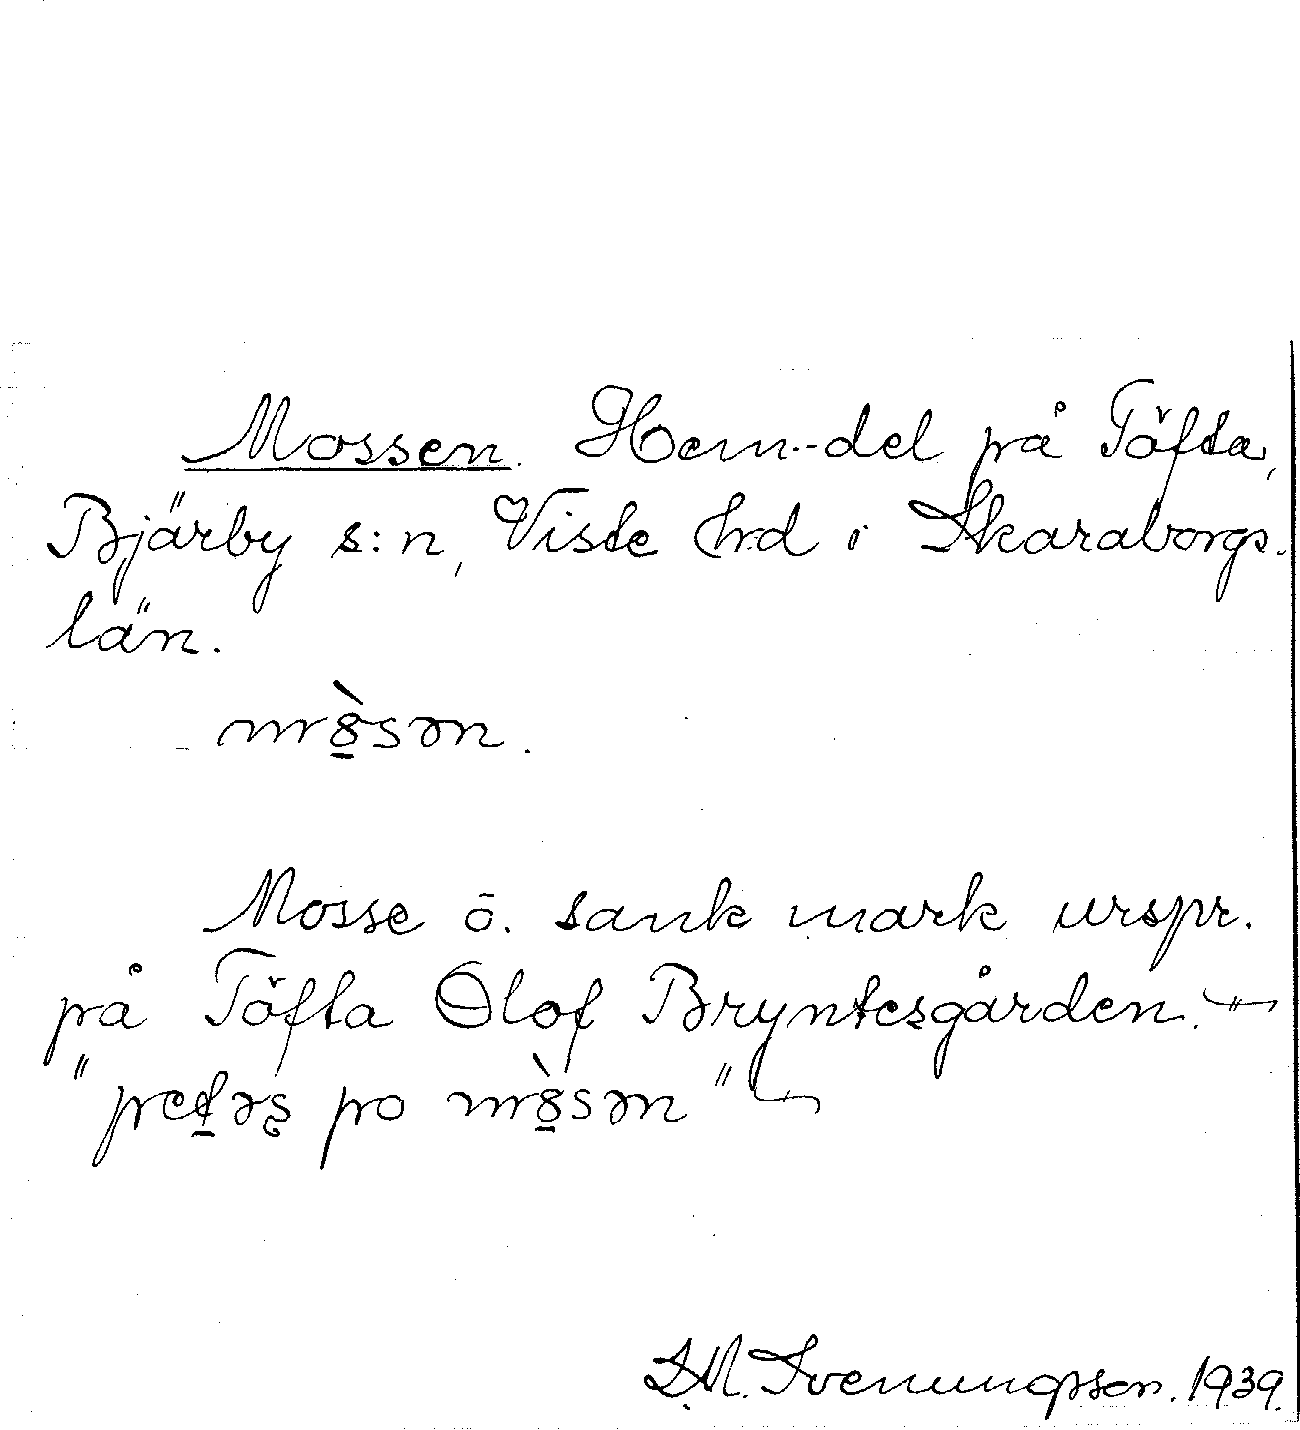 Mossen. Hem.-del på Töfta,
Bjärby s:n, Viste hrd i Skaraborgs-
län.
mòsən.
Mosse o. sank mark urspr.
på Töfta Olof Bryntesgården.
" po mòsən"
Svenungsson. 1939.